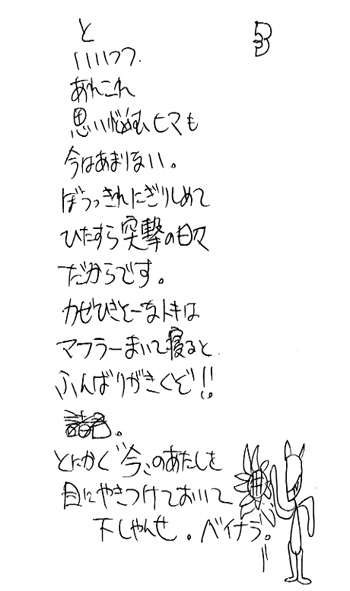 と
いいつつ.
あれこれ
思い悩むヒマも
今はあまりない。
ぼうっきれにぎりしめて
ひたすら突撃の日々
だからです。
カゼひきそーなトキは
マフラーまいて寝ると
ふんばりがきくぞ!!
諸君。
とにかく"今、のあたしを
目にやきつけておいて
下しゃんせ。バイナラ。